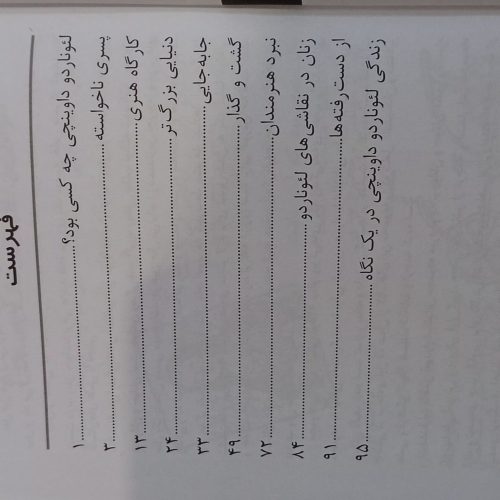 فهرست
لئوناردو داوینچی چه کسی بود؟ ........ ۱
پسری ناخواسته ........ ۳
کارگاه هنری ........ ۱۳
دنیایی بزرگ‌تر ........ ۲۴
جابه‌جایی ........ ۳۳
گشت و گذار ........ ۴۹
نبرد هنرمندان ........ ۷۲
زنان در نقاشی‌های لئوناردو ........ ۸۴
از دست رفته‌ها ........ ۹۱
زندگی لئوناردو داوینچی در یک نگاه ........ ۹۵